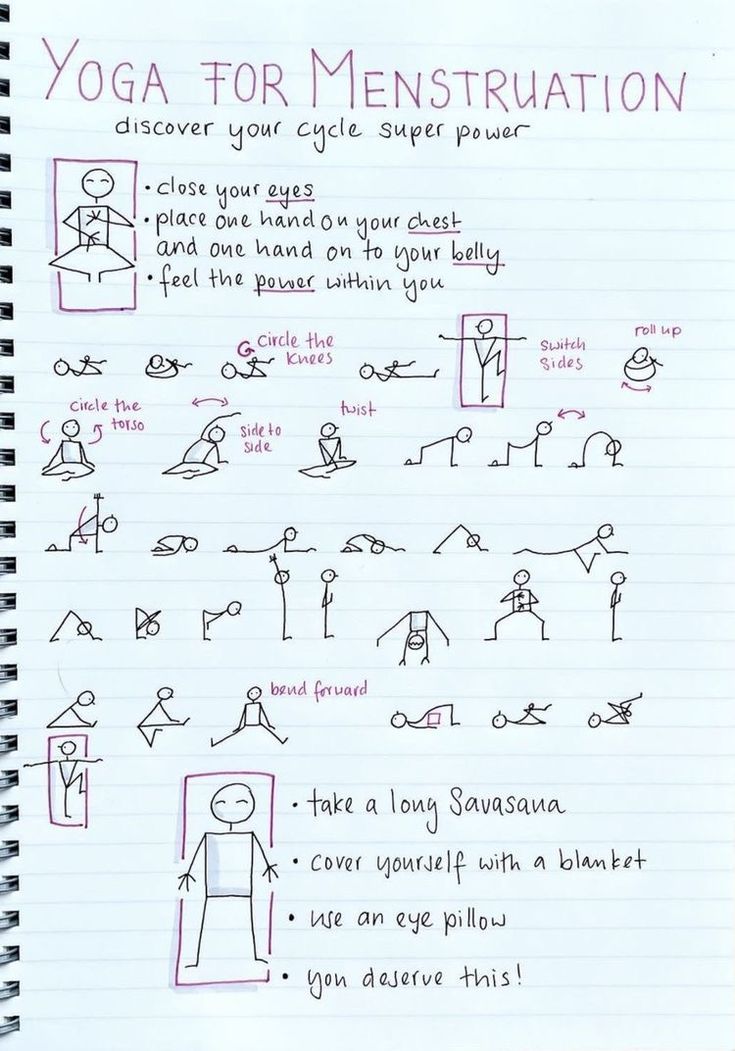 YOGA FOR MENSTRUATION
discover your cycle super power
• close your eyes
• place one hand on your chest
and one hand on to your belly
• feel the power within you
circle the
knees
switch
sides
roll up
circle the
torso
side to
side
twist
bend forward
• take a long Savasana
• cover yourself with a blanket
• use an eye pillow
• you deserve this!